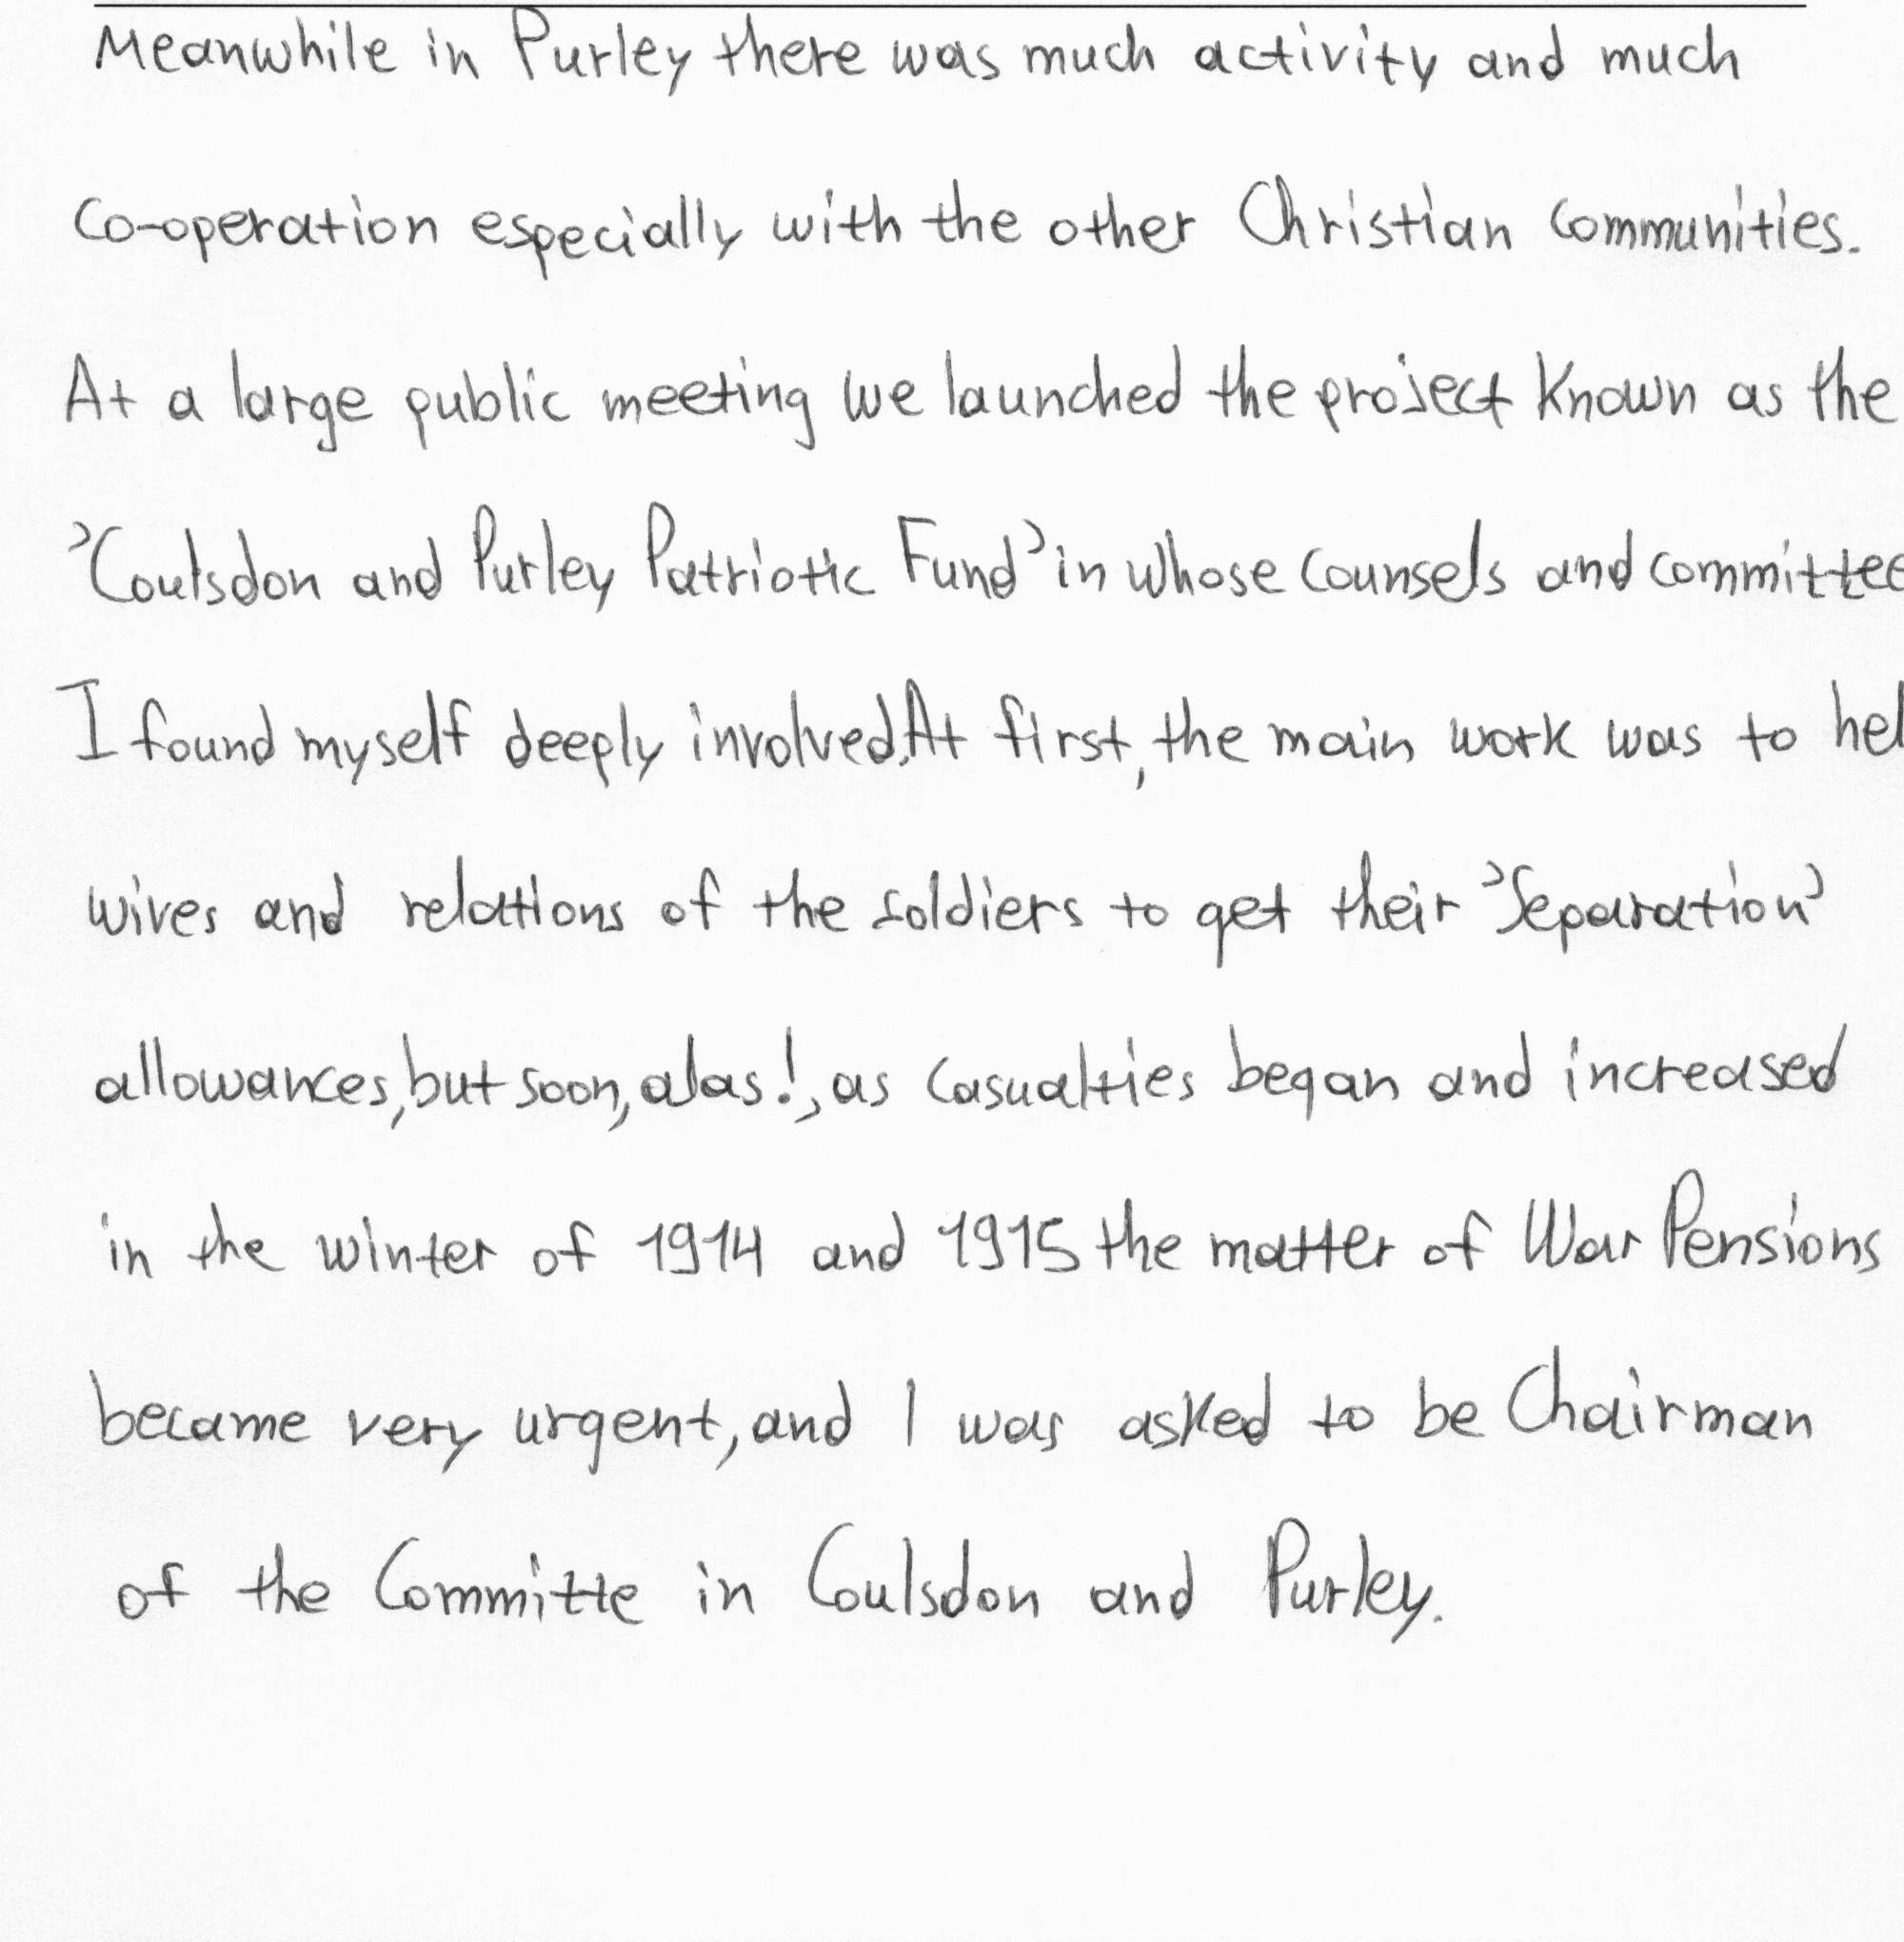 Meanwhile in Purley there was much activity and much
co-operation especially with the other Christian communities.
At a large public meeting we launched the project known as the
'Coulsdon and Purley Patriotic Fund' in whose counsels and committee
I found myself deeply involved. At first, the main work was to hel
wives and relations of the soldiers to get their 'Separation'
allowances, but soon, alas!, as casualties began and increased
in the winter of 1914 and 1915 the matter of War Pensions
became very urgent, and I was asked to be Chairman
of the Committe in Coulsdon and Purley.